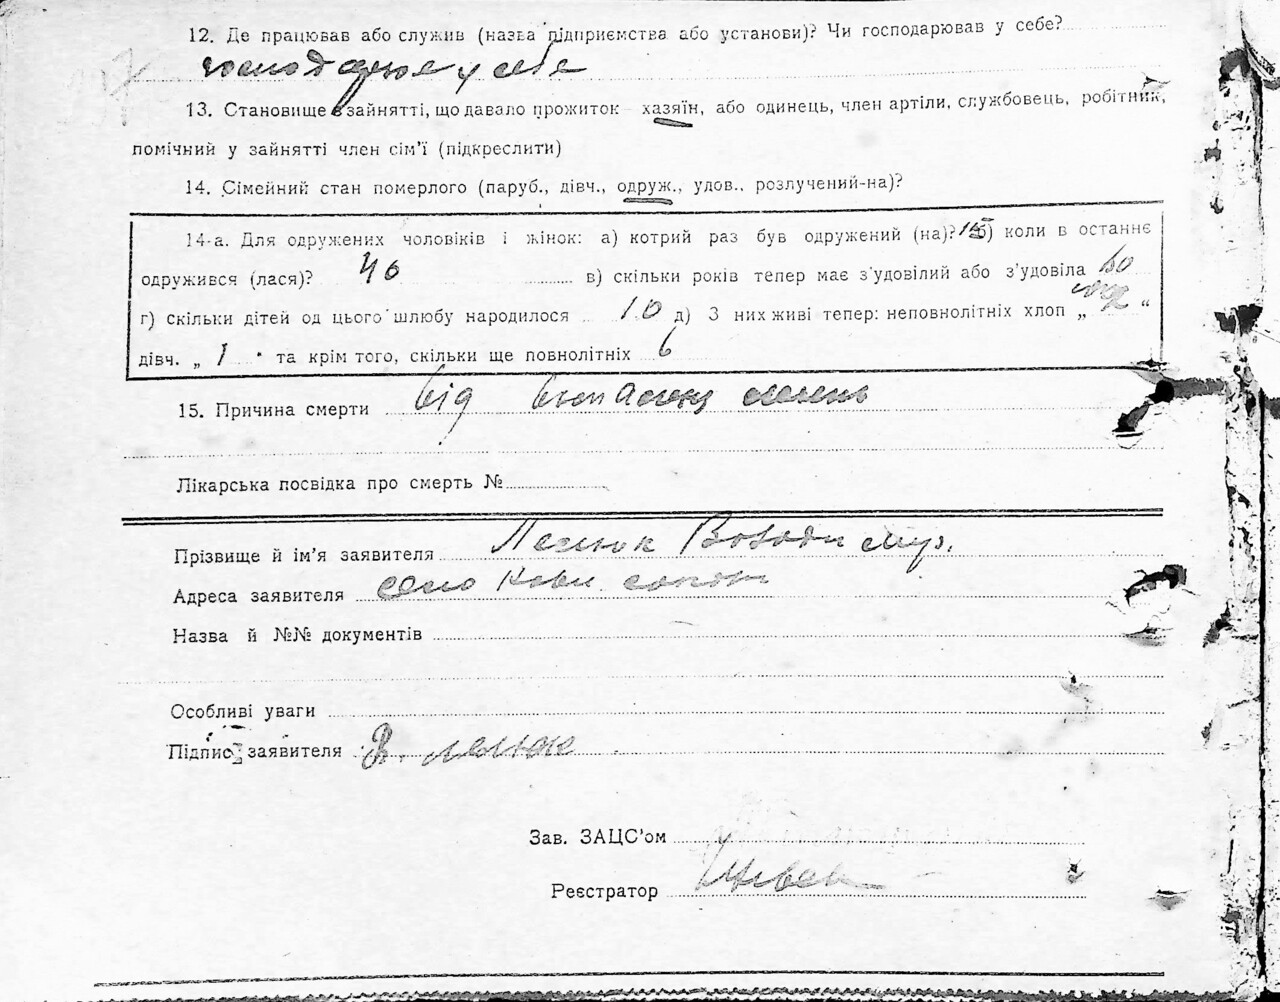 12. Де працював або служив (назва підприємства або установи)? Чи господарював у себе?
господарює у себе
13. Становище в зайнятті, що давало прожиток — хазяїн, або одинець, член артіли, службовець, робітник,
помічний у зайнятті член сім'ї (підкреслити)
14. Сімейний стан померлого (паруб., дівч., одруж., удов., розлучений-на)?
14-а. Для одружених чоловіків і жінок: а) котрий раз був одружений (на)? 1 б) коли в останнє
одружився (лася)? 46 в) скільки років тепер має з'удовілий або з'удовіла 60
г) скільки дітей од цього шлюбу народилося 10 д) З них живі тепер: неповнолітніх хлоп „ “
дівч. „ 1 “ та крім того, скільки ще повнолітніх 6
15. Причина смерти від
Лікарська посвідка про смерть №
Прізвище й ім'я заявителя Лелюк
Адреса заявителя село
Назва й №№ документів
Особливі уваги
Підпис заявителя В. Лелюк
Зав. ЗАЦС'ом
Реєстратор